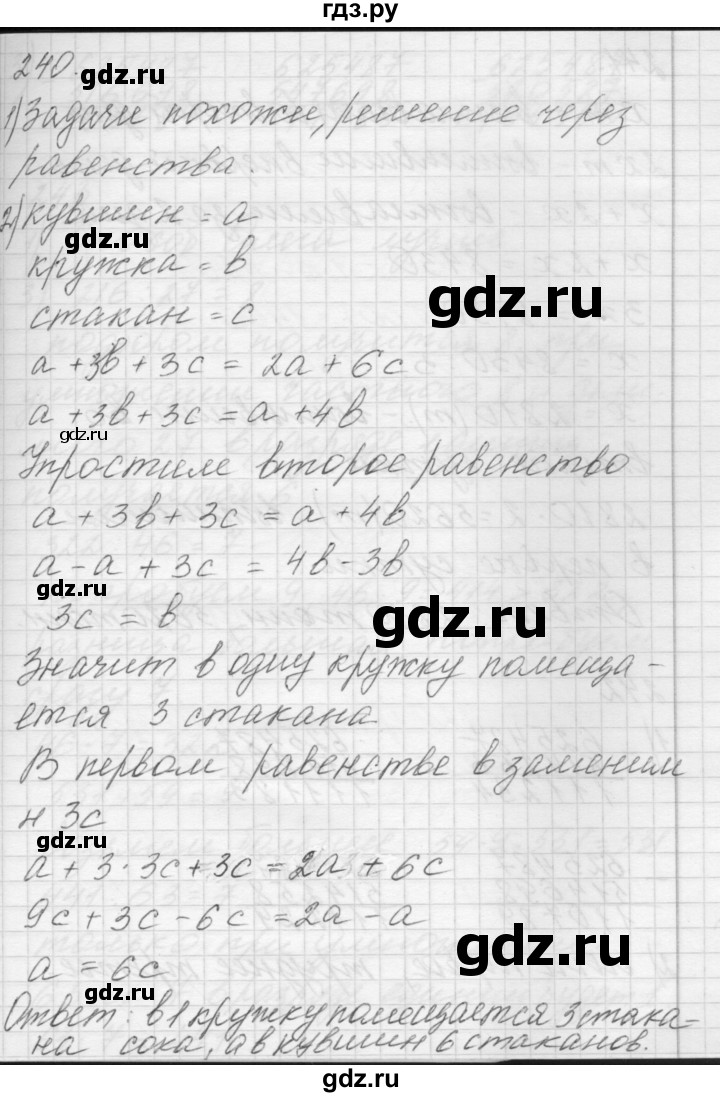 гдз.ру
240.
1) Задачи похожи, решение через
равенства.
2) кувшин = а
gdz.ru
кружка = в
gdz.ru
стакан = с
а + 3в + 3с = 2а + 6с
а + 3в + 3с = а + 4в
gdz.ru
Упростим второе равенство
а + 3в + 3с = а + 4в
gdz.ru
а - а + 3с = 4в - 3в
gdz.ru
3с = в
gdz.ru
Значит в одну кружку помеща-
ется 3 стакана
gdz.ru
В первом равенстве в заменим
н 3с
gdz.ru
а + 3·3с + 3с = 2а + 6с
9с + 3с - 6с = 2а - а
gdz.ru
а = 6с
gdz.ru
Ответ: в 1 кружку помещается 3 стака-
на сока, а в кувшин 6 стаканов.
gdz.ru